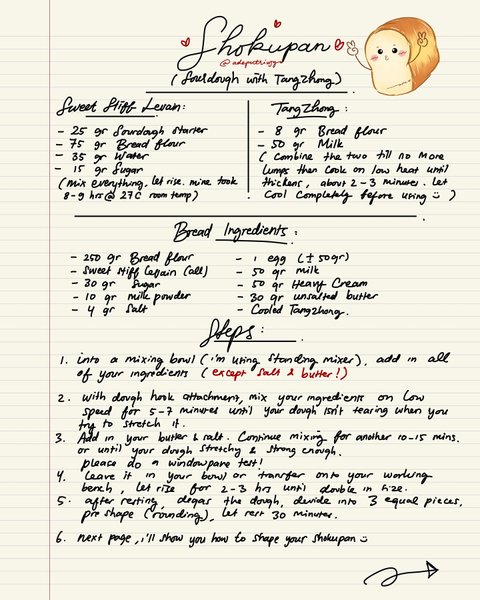 Shokupan
@adeputriugi
(Sourdough with TangZhong)
Sweet Stiff Levain:
- 25 gr Sourdough starter
- 75 gr Bread flour
- 35 gr Water
- 15 gr Sugar
(mix everything. let rise. mine took
8-9 hrs @ 27C room temp)
TangZhong:
- 8 gr Bread flour
- 50 gr Milk
( Combine the two till no more
lumps then cook on low heat until
thickens, about 2-3 minutes. Let
Cool Completely before using )
Bread Ingredients:
- 250 gr Bread flour
- Sweet Stiff Levain (all)
- 30 gr Sugar
- 10 gr milk powder
- 4 gr Salt
- 1 egg (± 50gr)
- 50 gr milk
- 50 gr Heavy Cream
- 30 gr unsalted butter
- Cooled TangZhong.
Steps:
1. into a mixing bowl (i'm using standing mixer), add in all
of your ingredients (except salt & butter!)
2. with dough hook attachment, mix your ingredients on low
speed for 5-7 minutes until your dough isn't tearing when you
try to stretch it.
3. Add in your butter & salt. Continue mixing for another 10-15 mins.
or until your dough stretchy & strong enough.
please do a windowpane test!
4. Leave it in your bowl or transfer onto your working
bench, let rise for 2-3 hrs until double in size.
5. after resting, degas the dough, devide into 3 equal pieces,
pre shape (rounding), let rest 30 minutes.
6. next page, i'll show you how to shape your shokupan